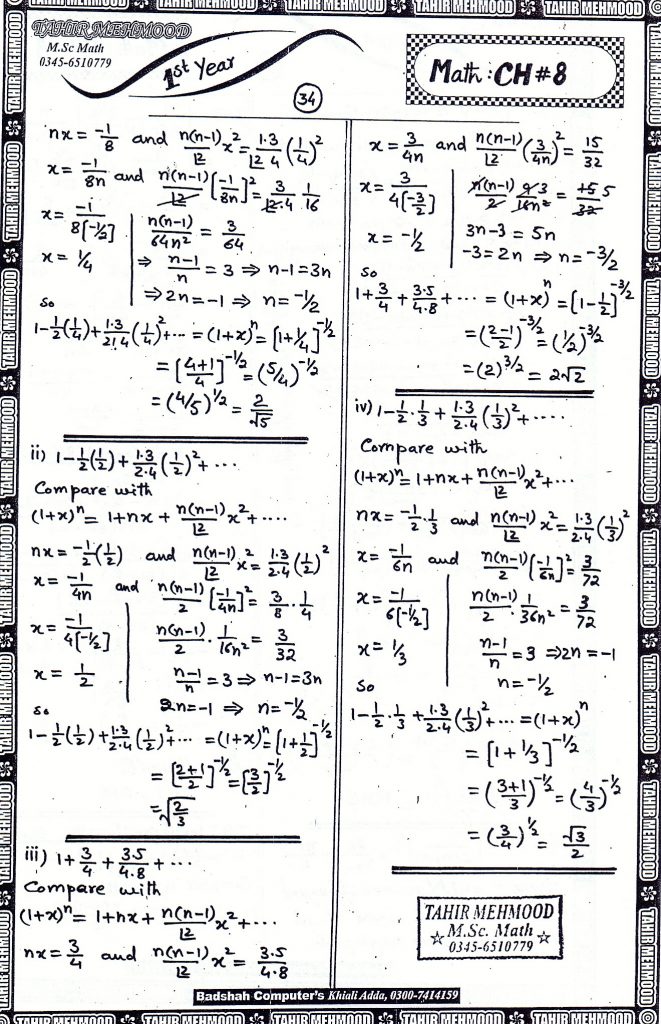 TAHIR MEHMOOD
M.Sc Math
0345-6510779
1st Year
34
Math: CH#8
nx = -1/8 and n(n-1)/⌊2 x² = 1·3/⌊2 4 (1/4)²
x = -1/8n and n(n-1)/⌊2 [-1/8n]² = 3/⌊2·4 1/16
x = -1/8[-1/2] | n(n-1)/64n² = 3/64
x = 1/4 | ⇒ n-1/n = 3 ⇒ n-1 = 3n
⇒ 2n = -1 ⇒ n = -1/2
so
1 - 1/2(1/4) + 1·3/2!4 (1/4)² + ··· = (1+x)^n = [1+1/4]^-1/2
= [4+1/4]^-1/2 = (5/4)^-1/2
= (4/5)^1/2 = 2/√5
ii) 1 - 1/2(1/2) + 1·3/2·4 (1/2)² + ···
Compare with
(1+x)^n = 1+nx + n(n-1)/⌊2 x² + ····
nx = -1/2(1/2) and n(n-1)/⌊2 x² = 1·3/2·4 (1/2)²
x = -1/4n and n(n-1)/2 [-1/4n]² = 3/8 · 1/4
x = -1/4[-1/2] | n(n-1)/2 · 1/16n² = 3/32
x = 1/2 | n-1/n = 3 ⇒ n-1 = 3n
2n = -1 ⇒ n = -1/2
so
1 - 1/2(1/2) + 1·3/2·4 (1/2)² + ··· = (1+x)^n = [1+1/2]^-1/2
= [2+1/2]^-1/2 = [3/2]^-1/2
= √2/3
iii) 1 + 3/4 + 3·5/4·8 + ···
Compare with
(1+x)^n = 1+nx + n(n-1)/⌊2 x² + ···
nx = 3/4 and n(n-1)/⌊2 x² = 3·5/4·8
x = 3/4n and n(n-1)/⌊2 (3/4n)² = 15/32
x = 3/4[-3/2] | n(n-1)/2 9 3/16n² = 15 5/32
x = -1/2 | 3n-3 = 5n
-3 = 2n ⇒ n = -3/2
so
1 + 3/4 + 3·5/4·8 + ··· = (1+x)^n = [1-1/2]^-3/2
= (2-1/2)^-3/2 = (1/2)^-3/2
= (2)^3/2 = 2√2
iv) 1 - 1/2·1/3 + 1·3/2·4 (1/3)² + ····
Compare with
(1+x)^n = 1+nx + n(n-1)/⌊2 x² + ···
nx = -1/2·1/3 and n(n-1)/⌊2 x² = 1·3/2·4 (1/3)²
x = -1/6n and n(n-1)/2 [-1/6n]² = 3/72
x = -1/6[-1/2] | n(n-1)/2 · 1/36n² = 3/72
x = 1/3 | n-1/n = 3 ⇒ 2n = -1
n = -1/2
So
1 - 1/2·1/3 + 1·3/2·4 (1/3)² + ··· = (1+x)^n
= [1+1/3]^-1/2
= (3+1/3)^-1/2 = (4/3)^-1/2
= (3/4)^1/2 = √3/2
TAHIR MEHMOOD
M.Sc. Math
0345-6510779
Badshah Computer's Khiali Adda, 0300-7414159
TAHIR MEHMOOD